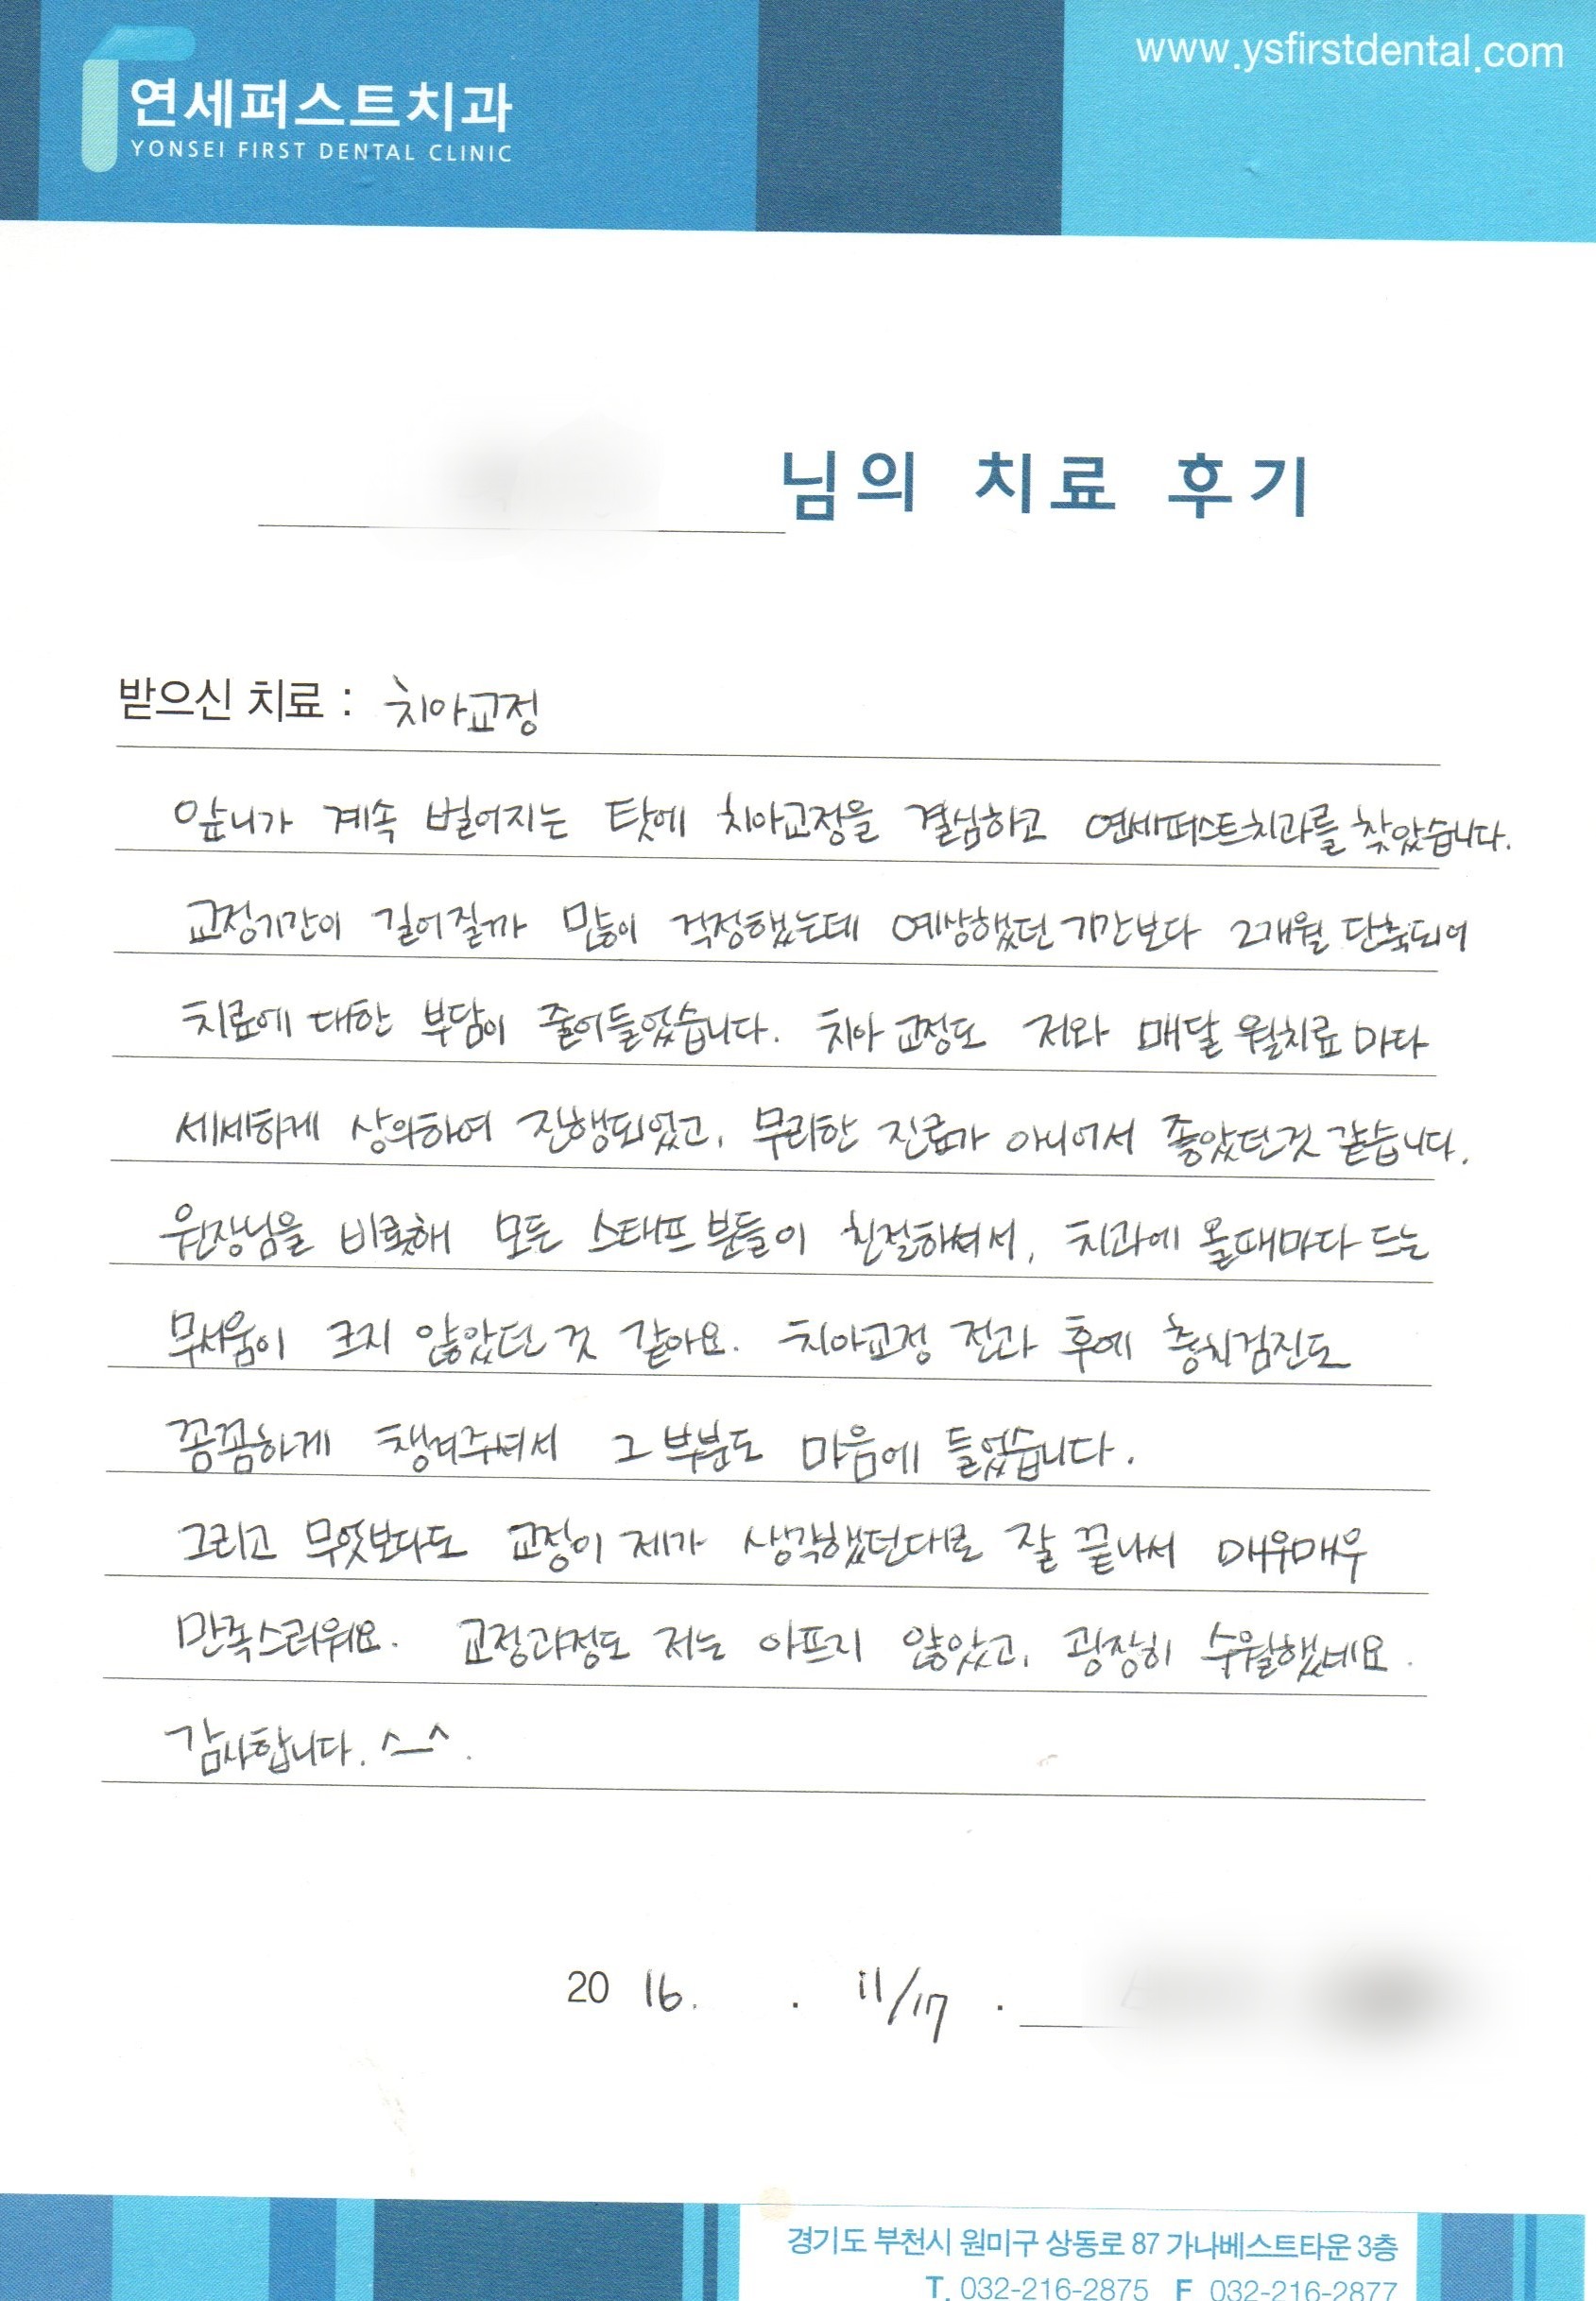 연세퍼스트치과
YONSEI FIRST DENTAL CLINIC
www.ysfirstdental.com
님의 치료 후기
받으신 치료 : 치아교정
앞니가 계속 벌어지는 탓에 치아교정을 결심하고 연세퍼스트치과를 찾았습니다.
교정기간이 길어질까 많이 걱정했는데 예상했던 기간보다 2개월 단축되어
치료에 대한 부담이 줄어들었습니다. 치아 교정도 저와 매달 월치료마다
세세하게 상의하여 진행되었고, 무리한 진료가 아니어서 좋았던것 같습니다.
원장님을 비롯해 모든 스태프 분들이 친절하셔서, 치과에 올때마다 드는
무서움이 크지 않았던 것 같아요. 치아교정 전과 후에 충치검진도
꼼꼼하게 챙겨주셔서 그 부분도 마음에 들었습니다.
그리고 무엇보다도 교정이 제가 생각했던대로 잘 끝나서 매우매우
만족스러워요. 교정과정도 저는 아프지 않았고, 굉장히 수월했네요.
감사합니다. ^_^.
20 16. . 11/17 .
경기도 부천시 원미구 상동로 87 가나베스트타운 3층
T. 032-216-2875 F 032-216-2877